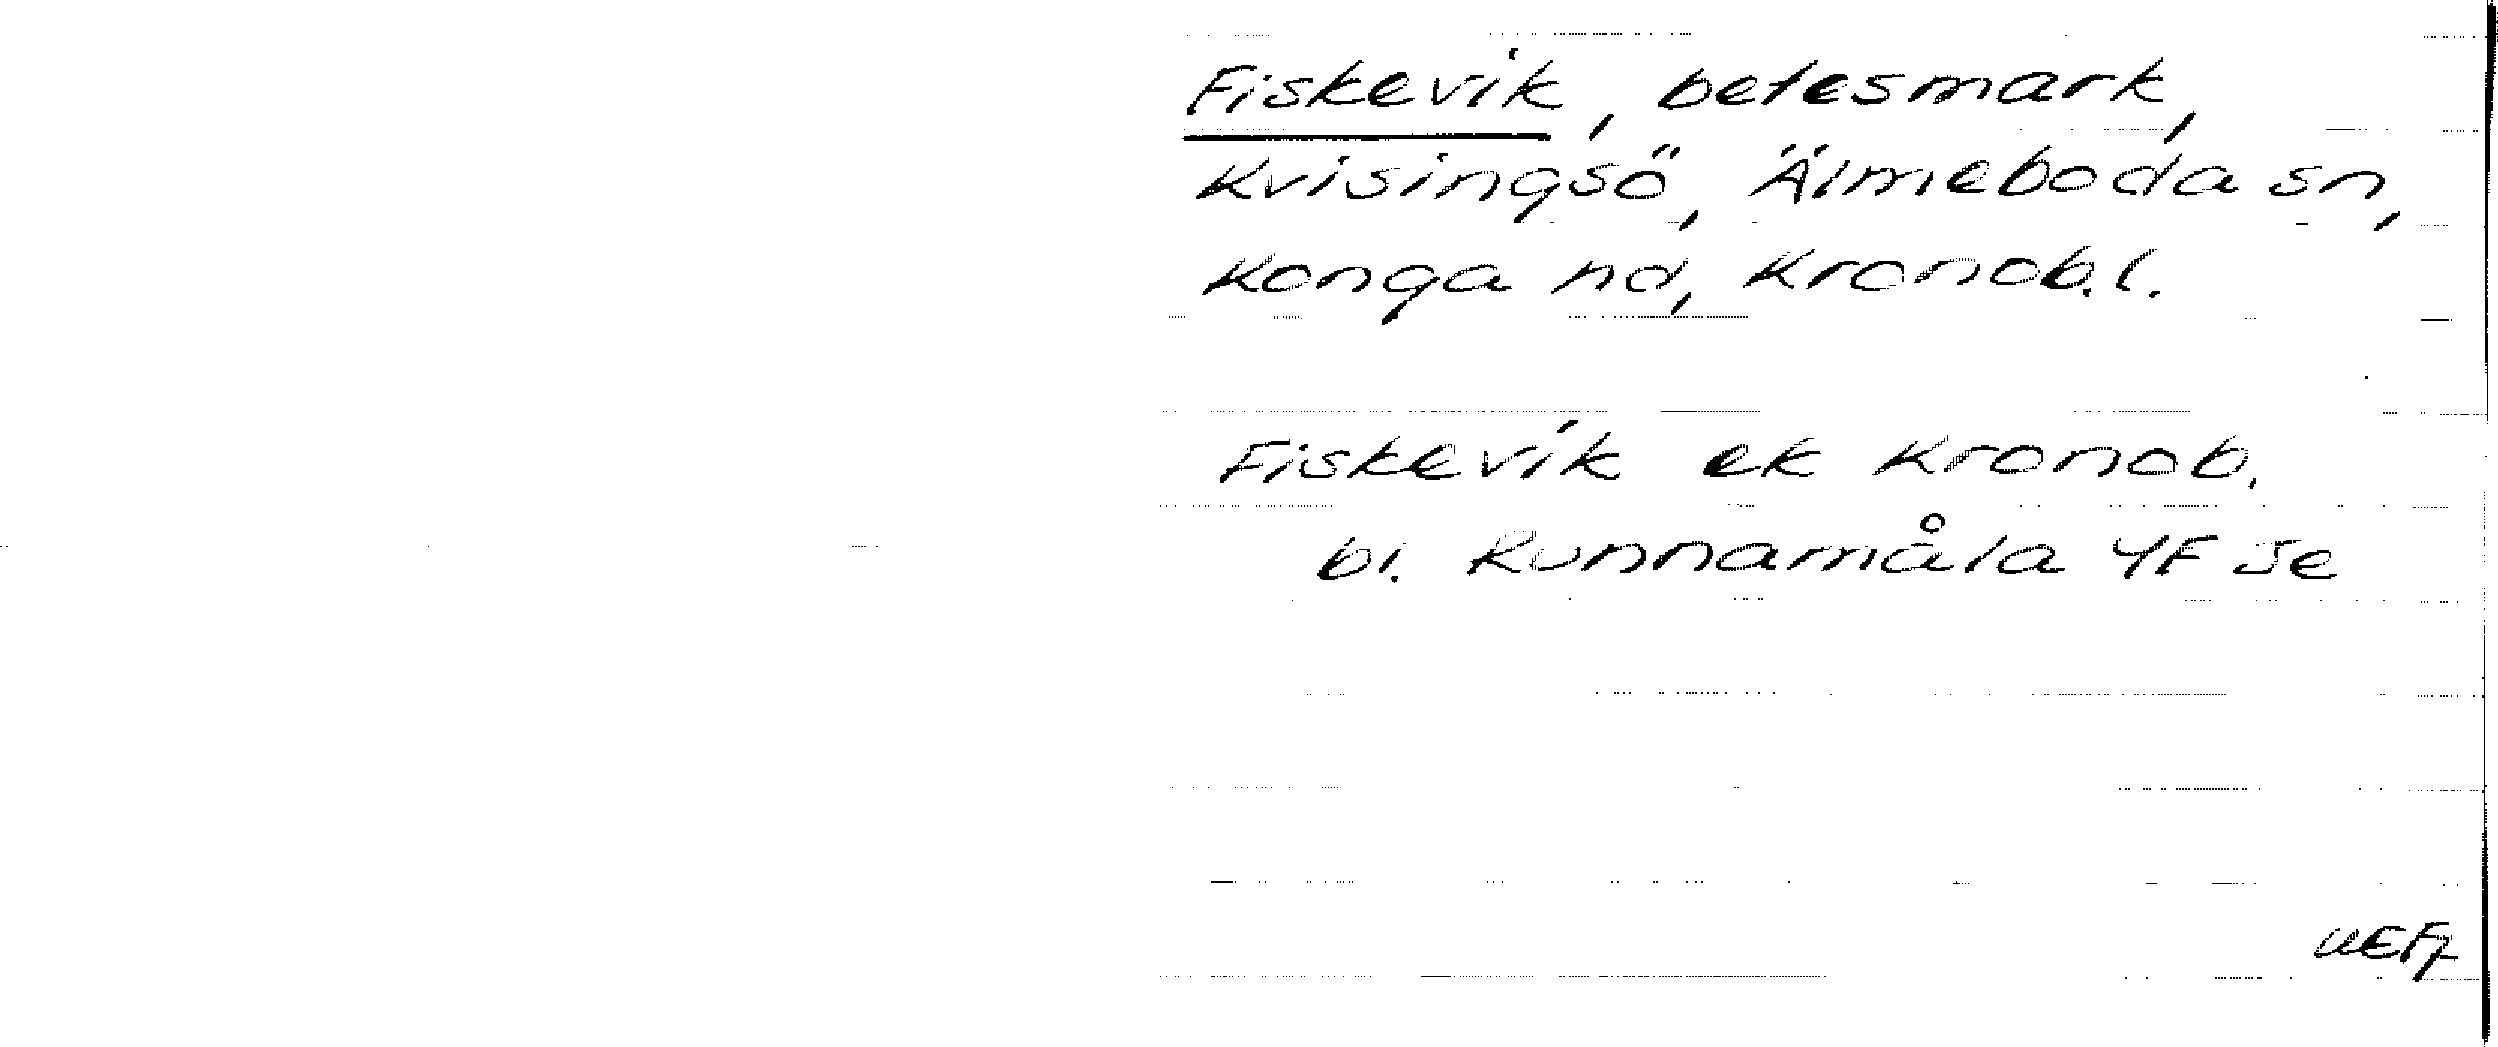 Fiskevik, betesmark,
Kvisingsö, Älmeboda sn,
Konga hd, Kronob.l.
Fiskevik ek Kronob.
bl. Runnamåla 4F Je